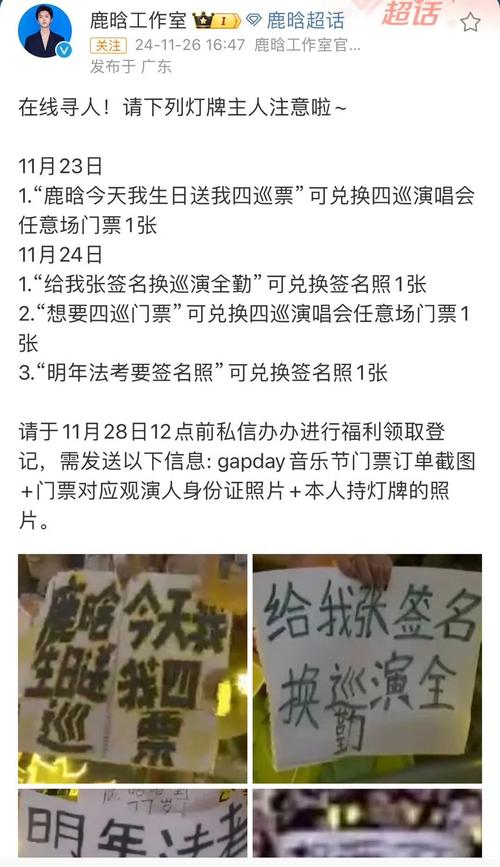 鹿晗工作室 I 鹿晗超话
超话
关注 24-11-26 16:47 鹿晗工作室官...
发布于 广东
在线寻人！请下列灯牌主人注意啦~
11月23日
1.“鹿晗今天我生日送我四巡票”可兑换四巡演唱会
任意场门票1张
11月24日
1.“给我张签名换巡演全勤”可兑换签名照1张
2.“想要四巡门票”可兑换四巡演唱会任意场门票1
张
3.“明年法考要签名照”可兑换签名照1张
请于11月28日12点前私信办办进行福利领取登
记，需发送以下信息: gapday音乐节门票订单截图
+门票对应观演人身份证照片+本人持灯牌的照
片。
鹿晗今天我
生日送我四
巡票
给我张签名
换巡演全
勤
77岁!
明年法考